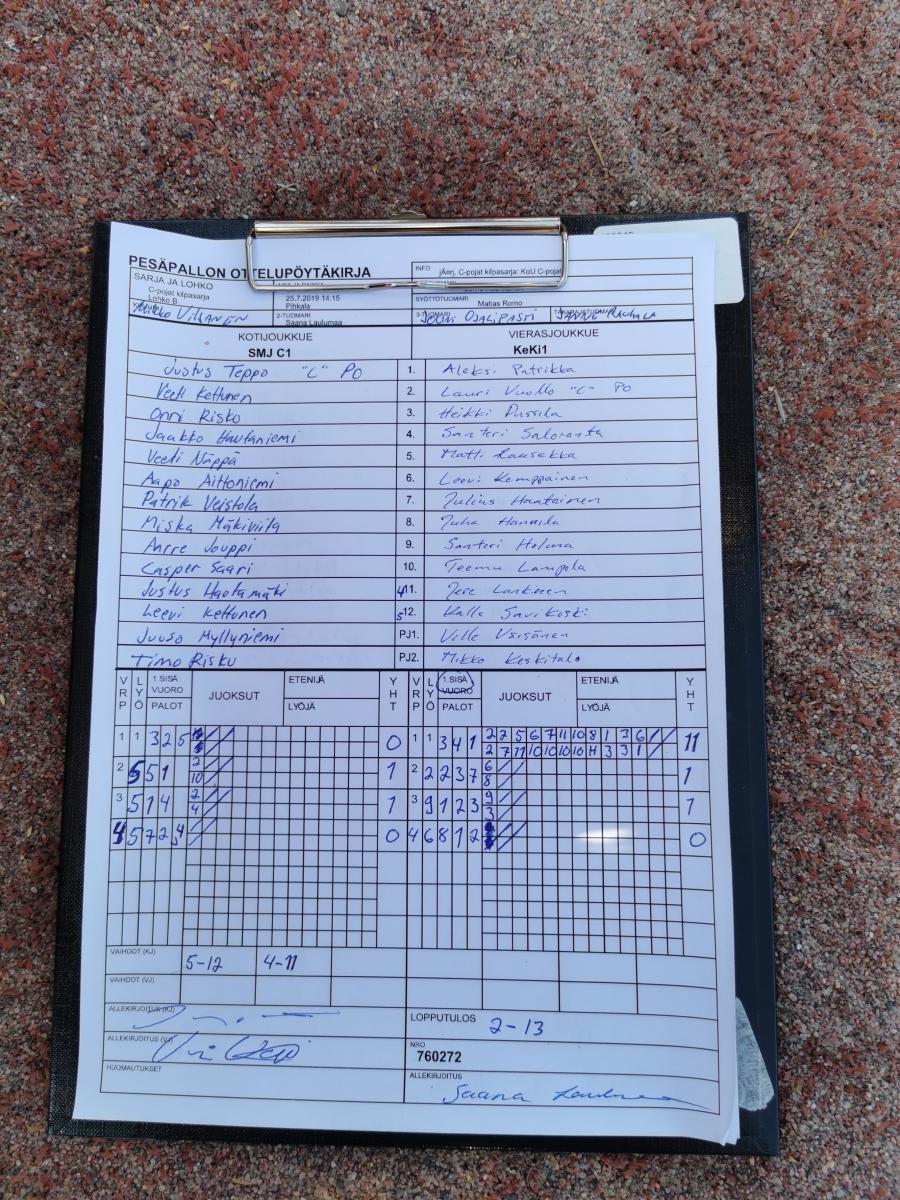 PESÄPALLON OTTELUPÖYTÄKIRJA
INFO jÄerj, C-pojat kilpasarja: KoU C-pojat
SARJA JA LOHKO
C-pojat kilpasarja
Lohko B
25.7.2019 14:15
Pihkala
SYÖTTÖTUOMARI Matias Romo
2-TUOMARI
Saana Laulumaa
3-TUOMARI
KOTIJOUKKUE VIERASJOUKKUE
SMJ C1 KeKi1
Justus Teppo "C" PO 1. Aleksi Patrikka
Veeti Kettunen 2. Lauri Vuollo "C" PO
Onni Risko 3. Heikki Pussila
Jaakko Hautaniemi 4. Santeri Saloranta
Veeti Näppä 5. Matti Kausakka
Aapo Aittoniemi 6. Leevi Kemppainen
Patrik Veistola 7. Julius Hautainen
Miska Mäkiviita 8. Juha Hannila
Anre Jouppi 9. Santeri Holma
Casper Saari 10. Teemu Lampola
Justus Hautamäki 4 11. Jere Lankeen
Leevi Kettunen 5 12. Kalle Savikoski
Juuso Myllyniemi PJ1. Ville Väisänen
Timo Risku PJ2. Mikko Keskitalo
VRP LYÖ 1.SISÄ VUORO PALOT JUOKSUT ETENIJÄ LYÖJÄ YHT VRP LYÖ 1.SISÄ VUORO PALOT JUOKSUT ETENIJÄ LYÖJÄ YHT
1 1 3 2 5 0 1 1 3 4 1 2 2 5 6 7 11 10 8 1 3 6 11
2 7 11 10 10 10 H 3 3 1
2 5 5 1 2 1 2 2 2 3 7 6 1
10 8
3 5 1 4 2 1 3 9 1 2 3 9 1
4 3
4 5 7 2 4 0 4 6 8 1 2 0
VAIHDOT (KJ) 5-12 4-11
VAIHDOT (VJ)
ALLEKIRJOITUS (KJ)
LOPPUTULOS 2-13
ALLEKIRJOITUS (VJ)
NRO
760272
HUOMAUTUKSET
ALLEKIRJOITUS
Saana